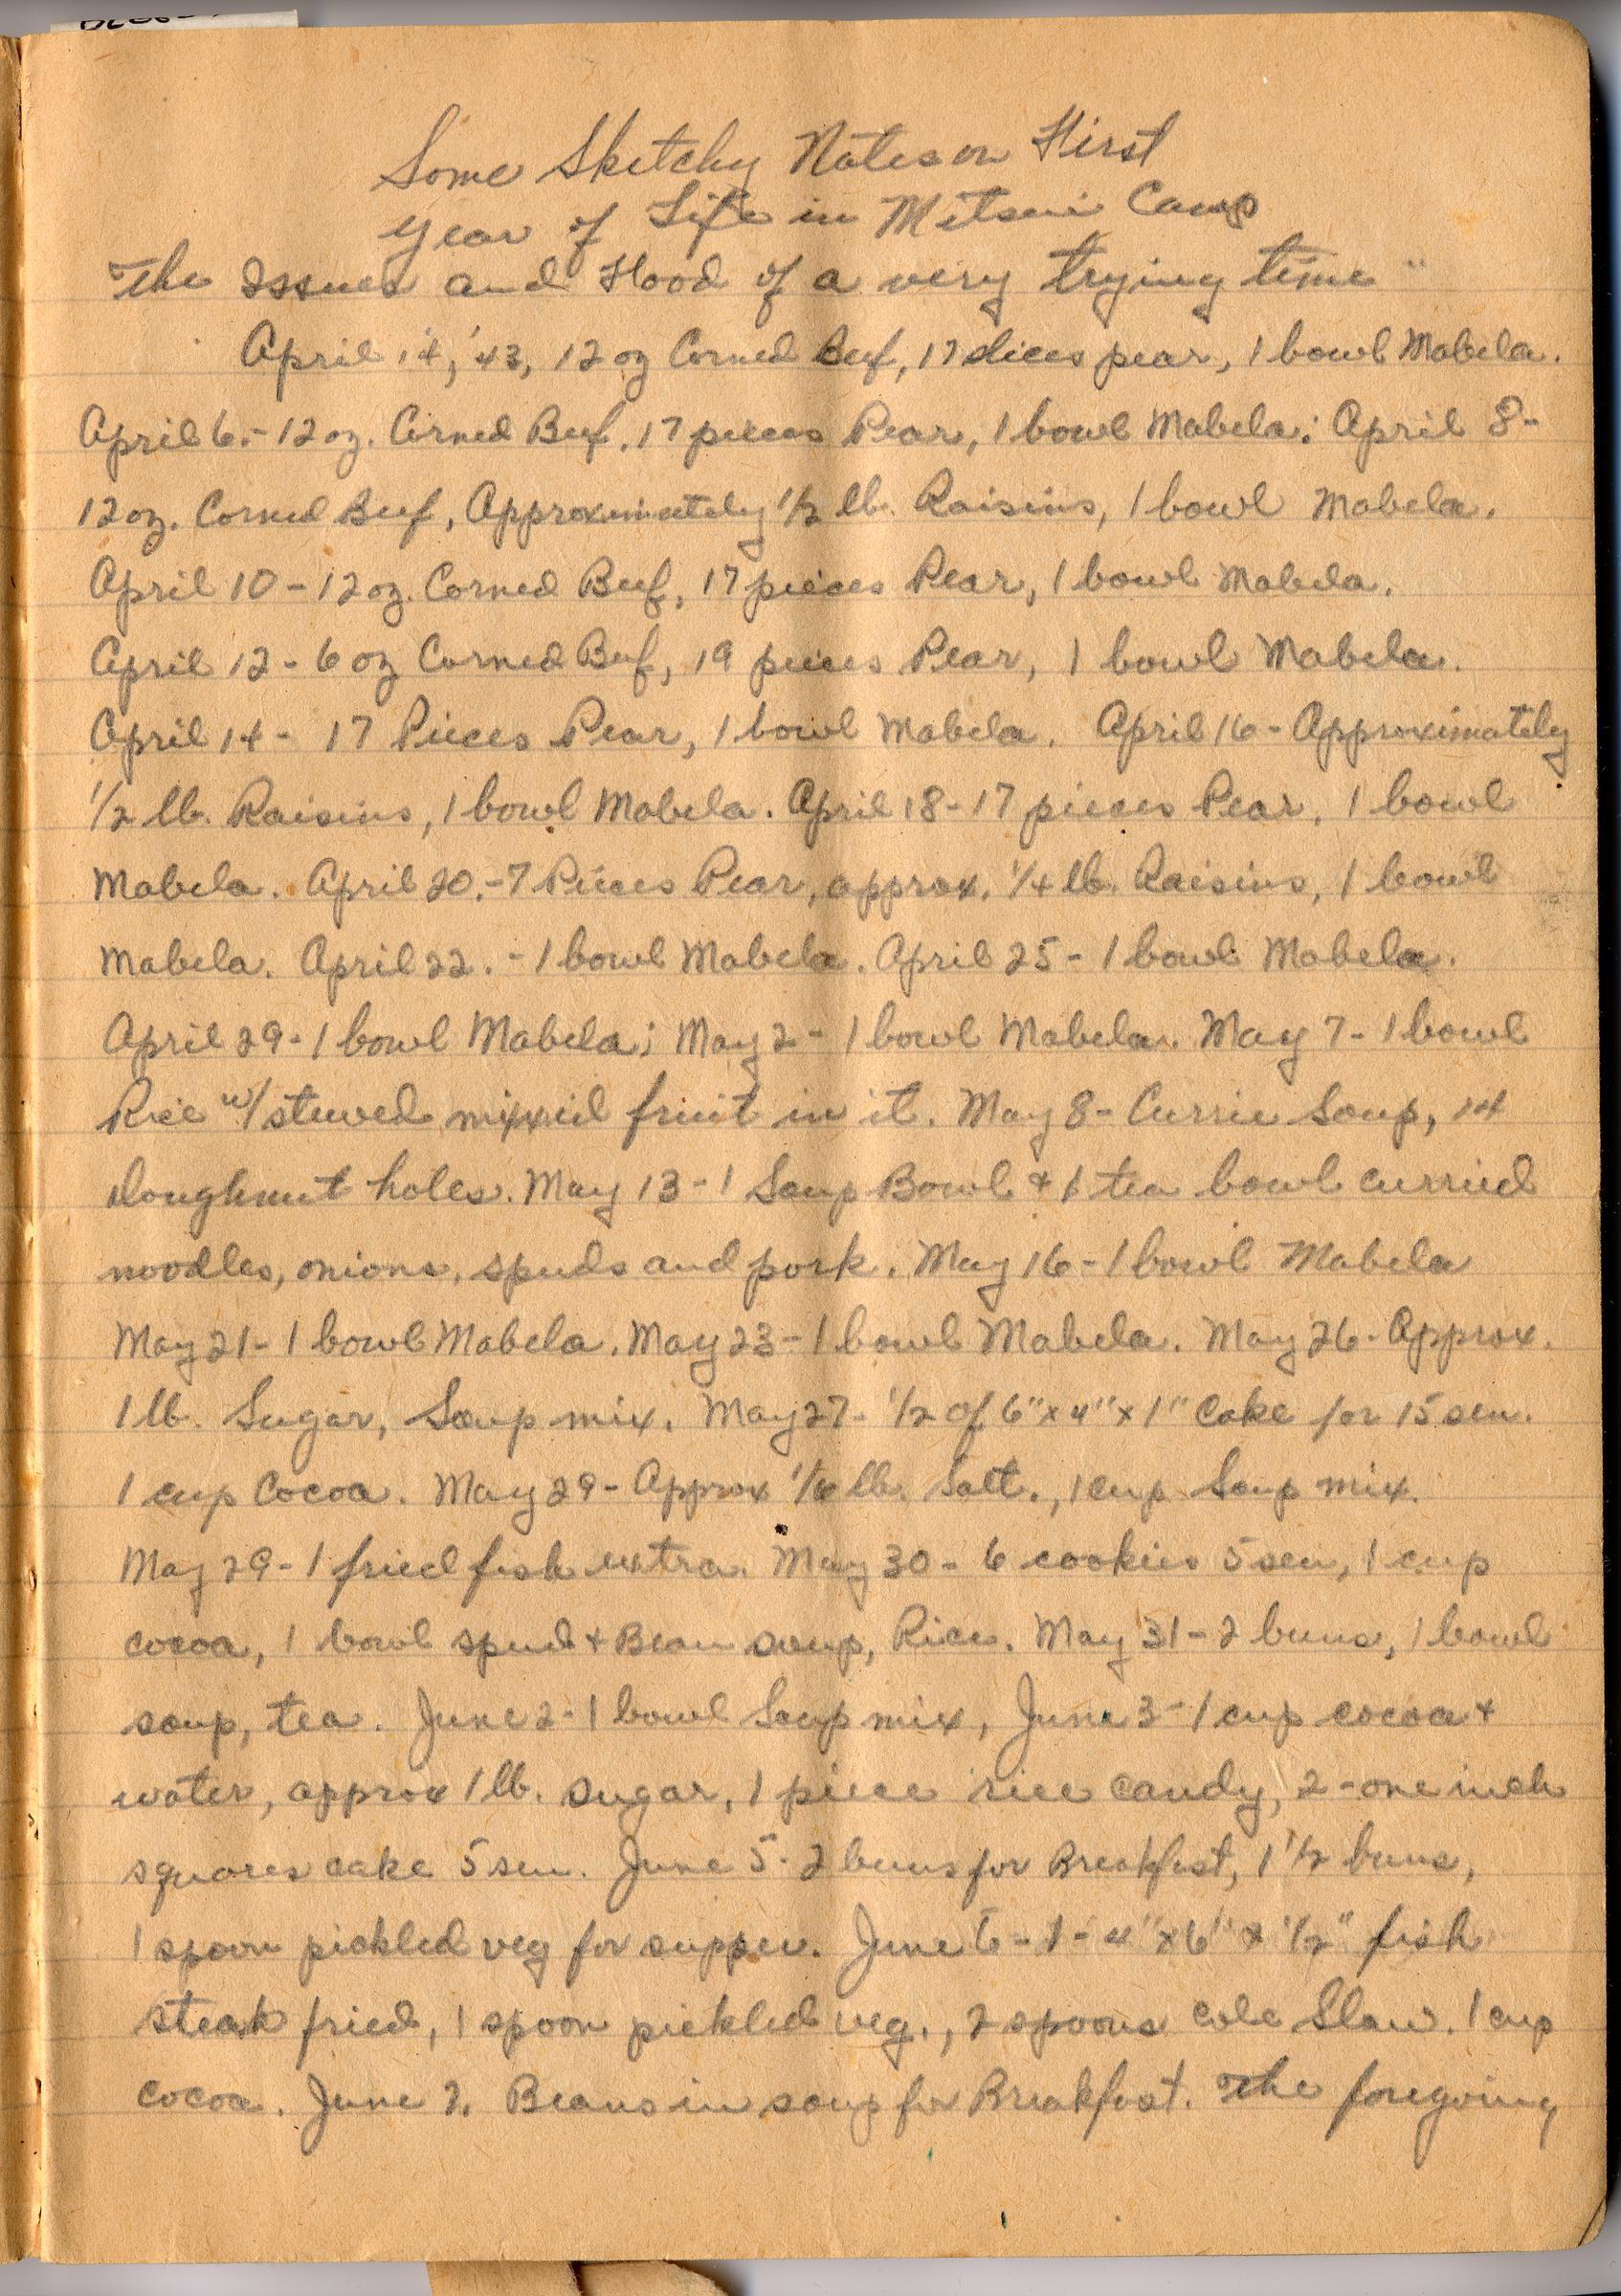 Some Sketchy Notes on First
Year of Life in Mitsui Camp
The Issues and Food of a very trying time"
April 14, '43, 12 oz Corned Beef, 17 slices pear, 1 bowl Mabela.
April 6.- 12 oz. Corned Beef, 17 pieces Pear, 1 bowl Mabela; April 8-
12 oz. Corned Beef, Approximately 1/2 lb. Raisins, 1 bowl Mabela.
April 10 - 12 oz. Corned Beef, 17 pieces Pear, 1 bowl Mabela.
April 12 - 6 oz Corned Beef, 19 pieces Pear, 1 bowl Mabela.
April 14 - 17 Pieces Pear, 1 bowl Mabela. April 16 - Approximately
1/2 lb. Raisins, 1 bowl Mabela. April 18 - 17 pieces Pear, 1 bowl
Mabela. April 20.- 7 Pieces Pear, approx. 1/4 lb. Raisins, 1 bowl
Mabela. April 22. - 1 bowl Mabela. April 25 - 1 bowl Mabela.
April 29 - 1 bowl Mabela; May 2 - 1 bowl Mabela. May 7 - 1 bowl
Rice w/ stewed mixxed fruit in it. May 8 - Currie Soup, 14
doughnut holes. May 13 - 1 Soup Bowl + 1 tea bowl curried
noodles, onions, spuds and pork. May 16 - 1 bowl Mabela
May 21 - 1 bowl Mabela. May 23 - 1 bowl Mabela. May 26 - Approx.
1 lb. Sugar, Soup mix. May 27 - 1/2 of 6" x 4" x 1" Cake for 15 sen.
1 cup Cocoa. May 29 - Approx lb. Salt., 1 cup Soup mix.
May 29 - 1 fried fish extra. May 30 - 6 cookies 5 sen, 1 cup
cocoa, 1 bowl spud + Bean soup, Rice. May 31 - 2 buns, 1 bowl
soup, tea. June 2 - 1 bowl Soup mix, June 3 - 1 cup cocoa +
water, approx 1 lb. sugar, 1 piece rice candy, 2 - one inch
squares cake 5 sen. June 5 - 2 buns for Breakfast, 1 1/2 buns,
1 spoon pickled veg for supper. June 6 - 1 - 4" x 6" x 1/2" fish
steak fried, 1 spoon pickled veg., 2 spoons cole Slaw. 1 cup
cocoa. June 7. Beans in soup for Breakfast. The foregoing